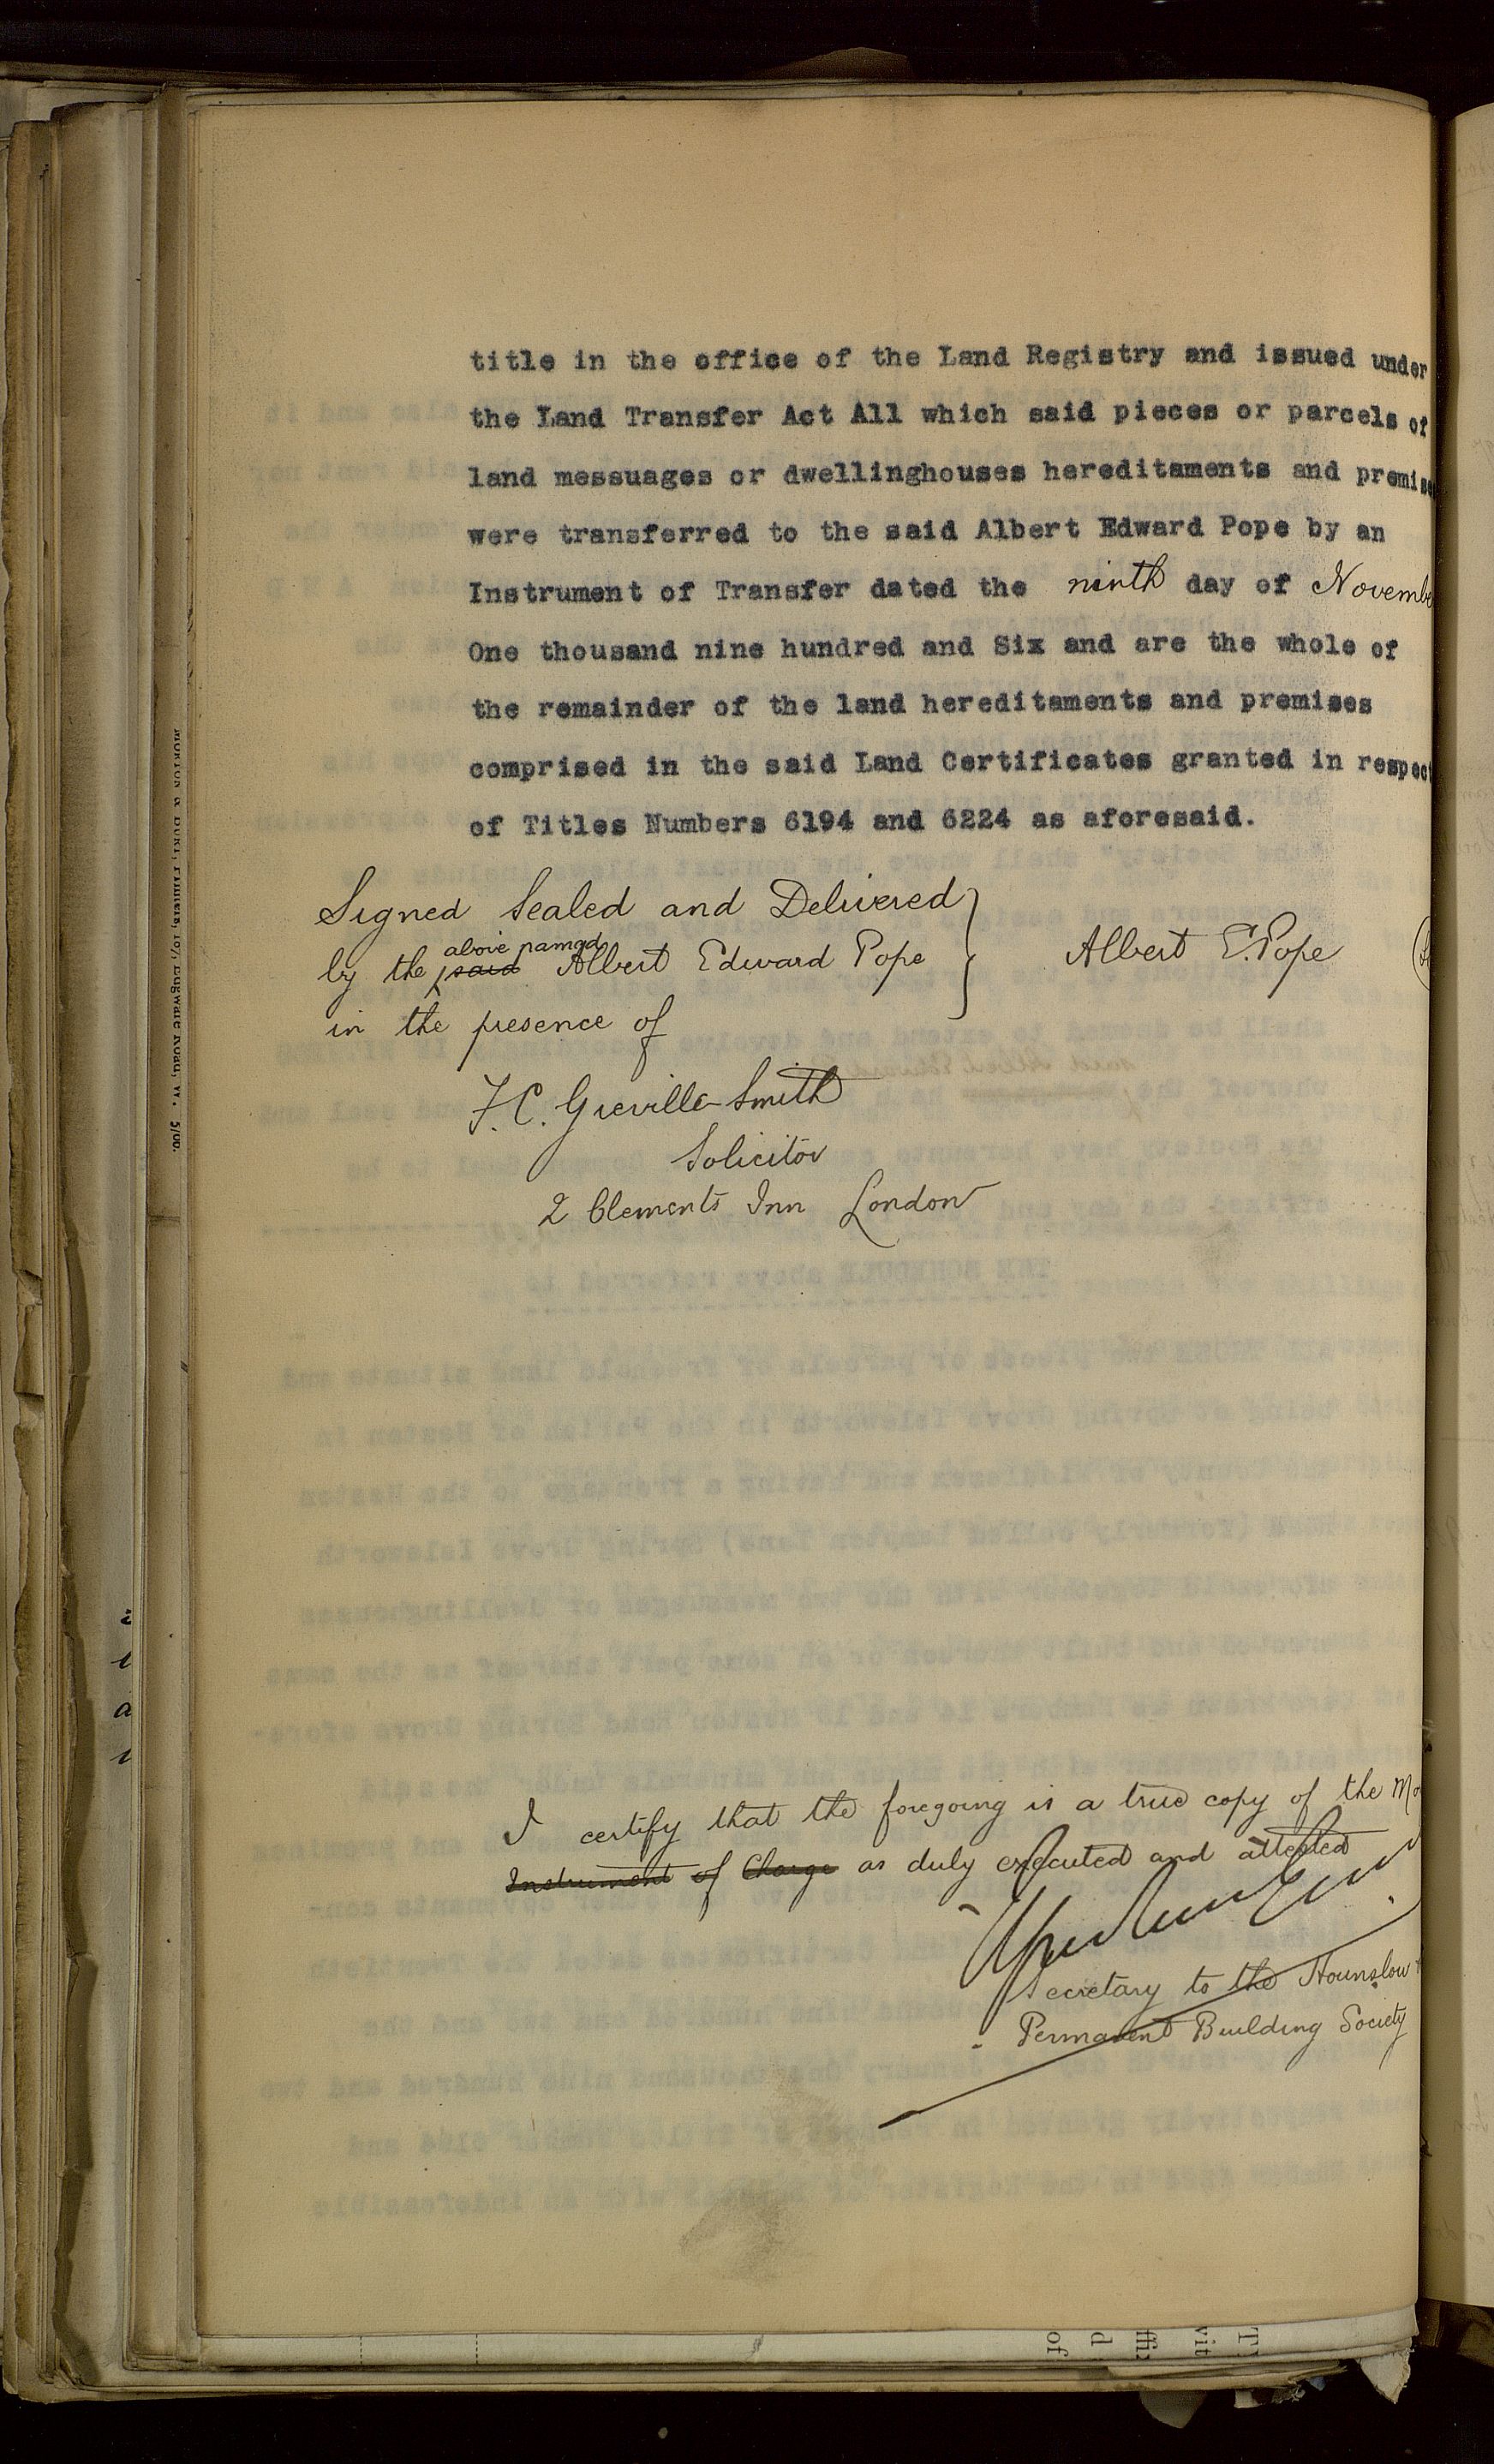 title in the office of the Land Registry and issued under
the Land Transfer Act All which said pieces or parcels of
land messuages or dwellinghouses hereditaments and premise
were transferred to the said Albert Edward Pope by an
Instrument of Transfer dated the ninth day of Novembe
One thousand nine hundred and Six and are the whole of
the remainder of the land hereditaments and premises
comprised in the said Land Certificates granted in respect
of Titles Numbers 6194 and 6224 as aforesaid.
Signed Sealed and Delivered
above named
by the said Albert Edward Pope
Albert E. Pope
in the presence of
F. C. Greville-Smith
Solicitor
2 Clements Inn London
I certify that the foregoing is a true copy of the Mo
Instrument of Charge as duly executed and attested
Secretary to the Hounslow
Permanent Building Society